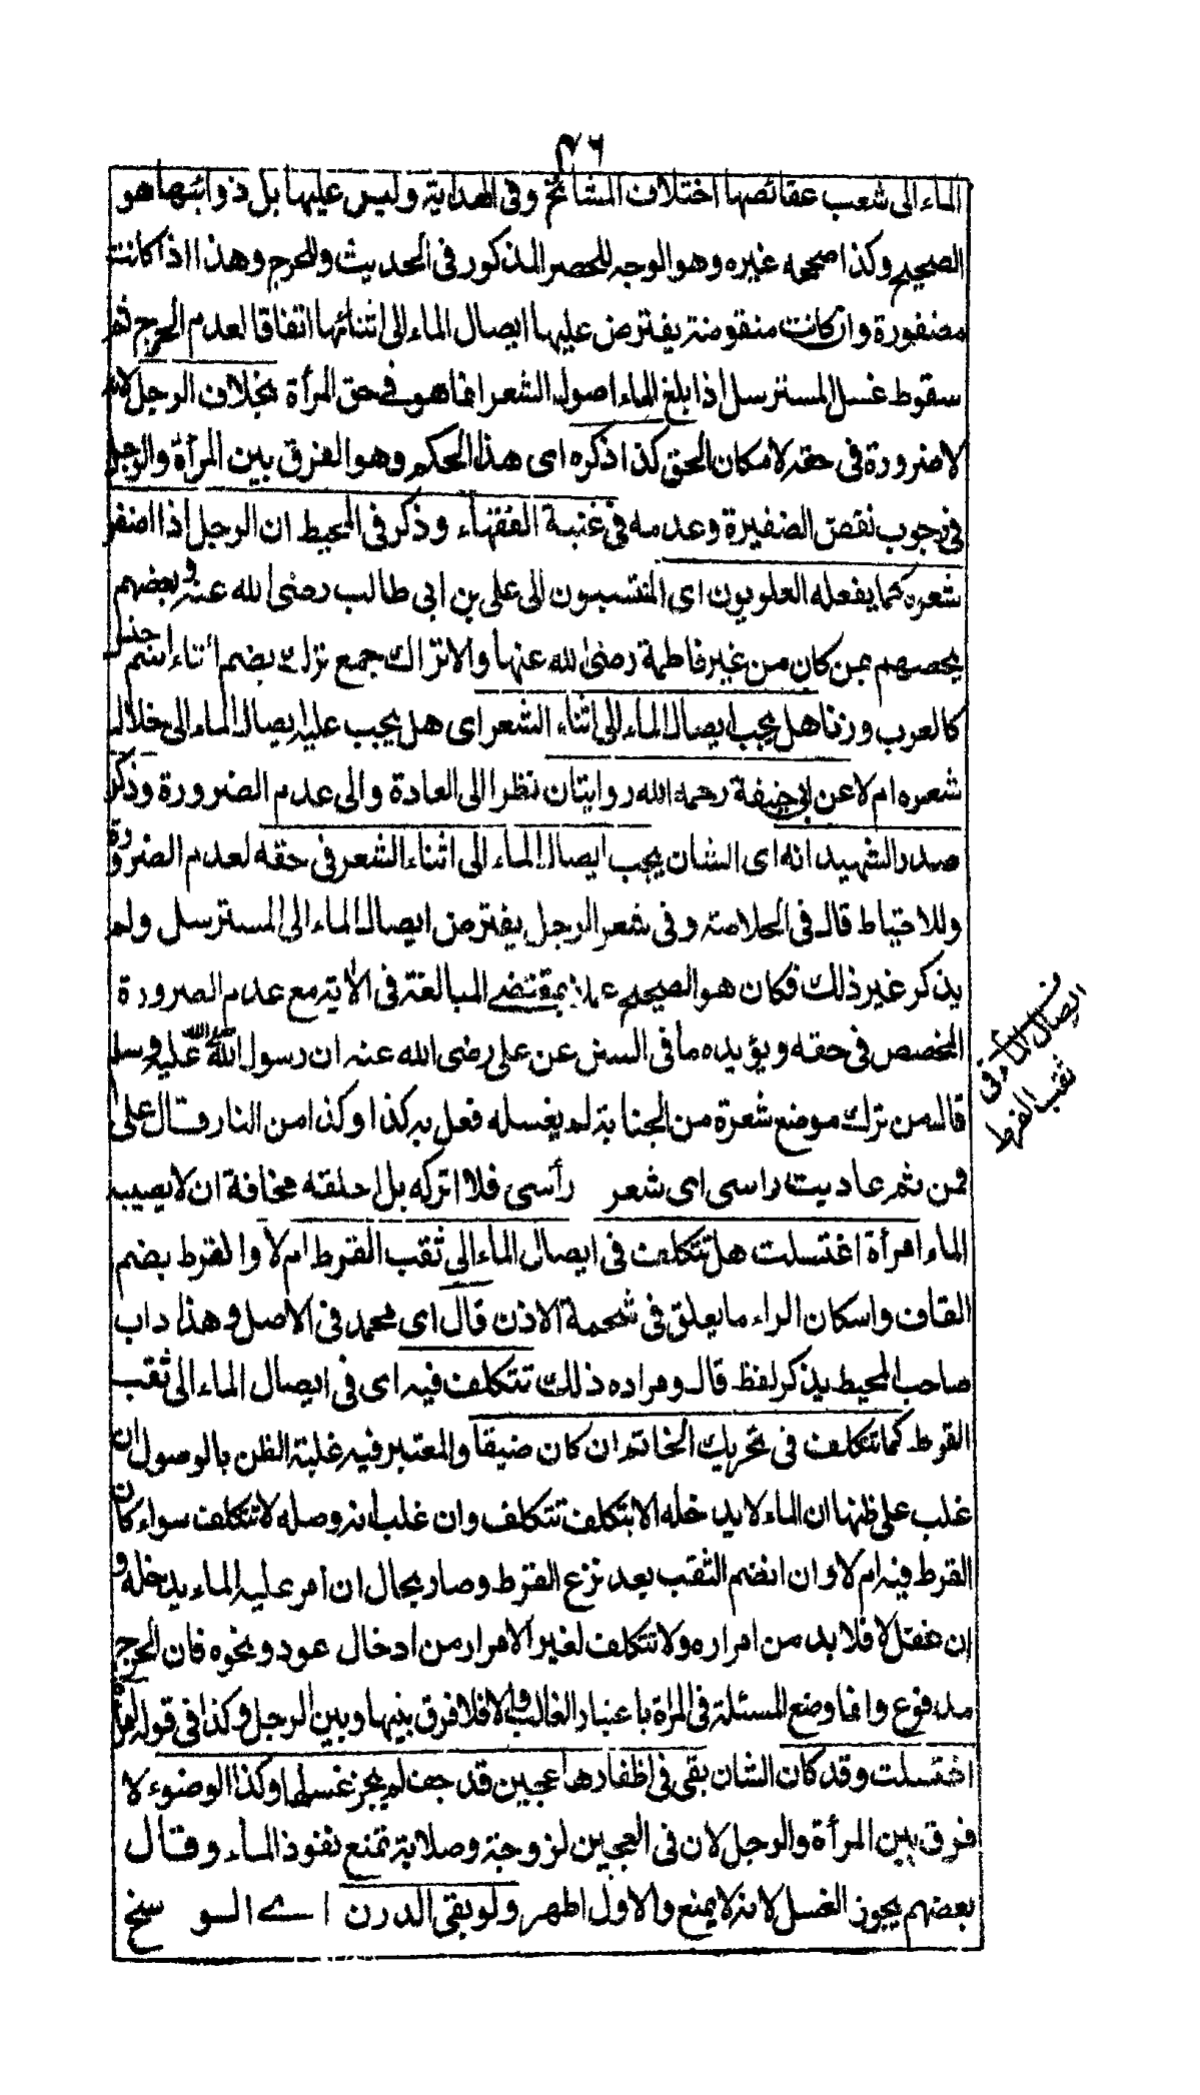 ٤٦
الماء الى شعب عقائصها اختلاف المشائخ وفى الهداية وليس عليها بل ذوائبها هو
الصحيح وكذا صححه غيره وهو الوجه للحصر المذكور فى الحديث وللحرج وهذا اذا كانت
مضفورة وان كانت منقوضة يفترض عليها ايصال الماء الى اثنائها اتفاقا لعدم الحرج ثم
سقوط غسل المسترسل اذا بلغ الماء اصول الشعر انما هو فى حق المرأة بخلاف الرجل لانه
لا ضرورة فى حقه لامكان الحلق كذا ذكره اى هذا الحكم وهو الفرق بين المرأة والرجل
فى وجوب نقض الضفيرة وعدمه فى غنية الفقهاء وذكر فى المحيط ان الرجل اذا ضفر
شعره كما يفعله العلويون اى المنتسبون الى على بن ابى طالب رضى الله عنه وبعضهم
يخصهم بمن كان من غير فاطمة رضى الله عنها والاتراك جمع ترك بضم التاء اسم جنس
كالعرب وزنا هل يجب ايصال الماء الى اثناء الشعر اى هل يجب عليه ايصال الماء الى خلال
شعره ام لا عن ابى حنيفة رحمه الله روايتان نظرا الى العادة والى عدم الضرورة وذكر
صدر الشهيد انه اى الشان يجب ايصال الماء الى اثناء الشعر فى حقه لعدم الضرورة
وللاحتياط قال فى الخلاصة وفى شعر الرجل يفترض ايصال الماء الى المسترسل ولم
يذكر غير ذلك فكان هو الصحيح عملا بمقتضى المبالغة فى الاية مع عدم الضرورة
المخصص فى حقه ويؤيده ما فى السنن عن على رضى الله عنه ان رسول الله صلى الله عليه وسلم
قال من ترك موضع شعرة من الجنابة لم يغسله فعل به كذا وكذا من النار قال على
فمن ثم عاديت راسى اى شعر رأسى فلا اتركه بل احلقه مخافة ان لا يصيبه
الماء امرأة اغتسلت هل تتكلف فى ايصال الماء الى ثقب القرط ام لا والقرط بضم
القاف واسكان الراء ما يعلق فى شحمة الاذن قال اى محمد فى الاصل وهذا داب
صاحب المحيط يذكر لفظ قال ومراده ذلك تتكلف فيه اى فى ايصال الماء الى ثقب
القرط كما تتكلف فى تحريك الخاتم ان كان ضيقا والمعتبر فيه غلبة الظن بالوصول ان
غلب على ظنها ان الماء لا يدخله الا بتكلف تتكلف وان غلب انه وصله لا تتكلف سواء كان
القرط فيه ام لا وان انضم الثقب بعد نزع القرط وصار بحال ان امر عليه الماء يدخله و
ان غفل لا فلا بد من امراره ولا تتكلف لغير الامرار من ادخال عود ونحوه فان الحرج
مدفوع وانما وضع المسئلة فى المرأة باعتبار الغالب والا فلا فرق بينها وبين الرجل وكذا فى قوله امرأة
اغتسلت وقد كان الشان بقى فى اظفارها عجين قد جف لم يجز غسلها وكذا الوضوء لا
فرق بين المرأة والرجل لان فى العجين لزوجة وصلابة تمنع نفوذ الماء وقال
بعضهم يجوز الغسل لانه لا يمنع والاول اظهر ولو بقى الدرن اى الوسخ
ايصال الماء فى
ثقب القرط